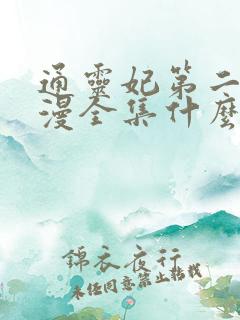 通靈妃第二
漫全集什麼
錦衣夜行
未经同意禁止转载